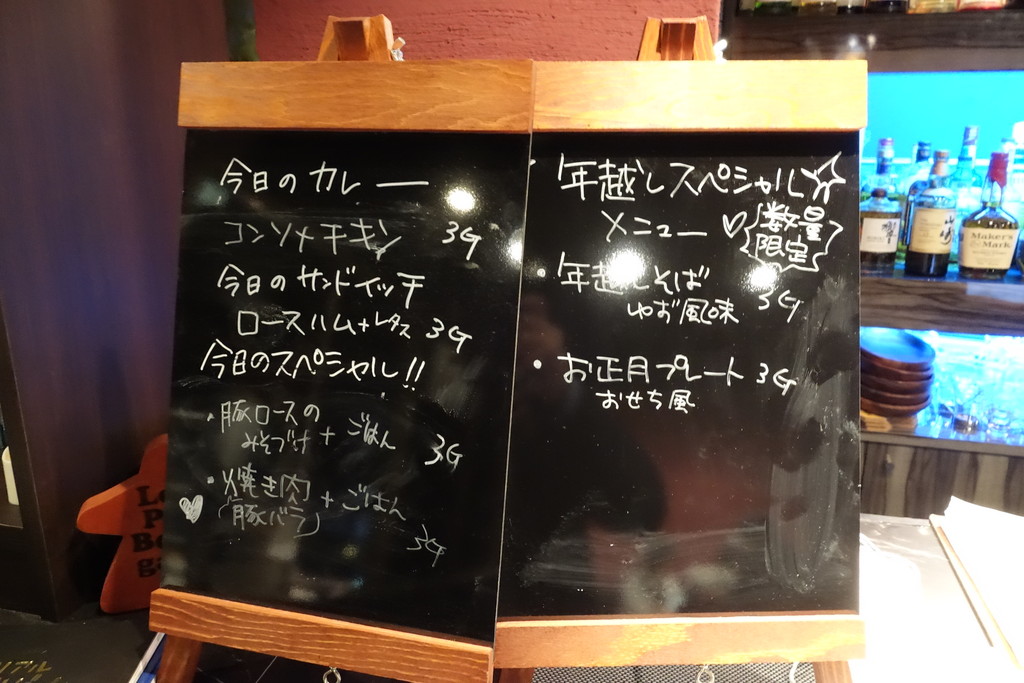 今日のカレー
コンソメチキン 3G
今日のサンドイッチ
ロースハム+レタス 3G
今日のスペシャル!!
・豚ロースの
みそづけ + ごはん 3G
・焼き肉 + ごはん
(豚バラ) 3G
・年越しスペシャル
メニュー ♡ 数量
限定
・年越しそば 3G
ゆず風味
・お正月プレート 3G
おせち風
Maker's
Mark